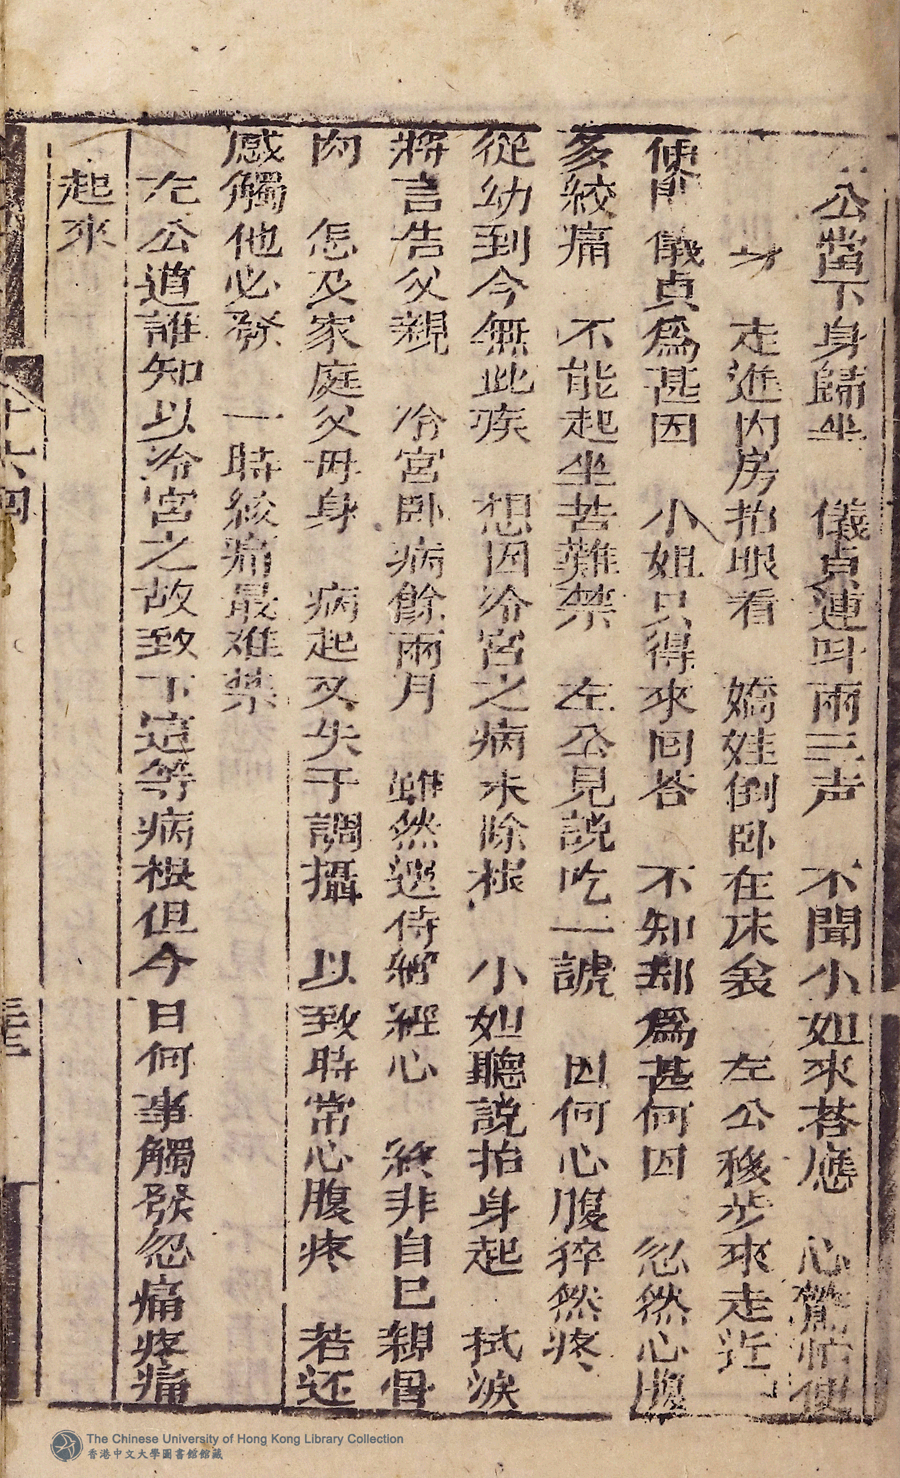 公當下身歸坐 儀貞連叫兩三声 不聞小如來荅應 心驚怕便
身 走進內房抬眼看 嬌娃倒卧在床衾 左公移步來走近
便問儀貞為甚因 小姐只得來囬荅 不知却為甚何因 忽然心腹
多絞痛 不能起坐苦難禁 左公見說吃一諕 因何心腹猝然疼
從幼到今無此疾 想因冷宮之病未除根 小如聽說抬身起 拭淚
將言告父親 冷宮卧病餘兩月 雖然逆侍經心 終非自己親骨
肉 怎及家庭父母身 病起又失于調攝 以致時常心腹疼 若还
感觸他必發 一時絞痛最难禁
左公道誰知以冷宮之故致下這等病根但今日何事觸發忽痛疼痛
起來
十六囬
The Chinese University of Hong Kong Library Collection
香港中文大學圖書館館藏